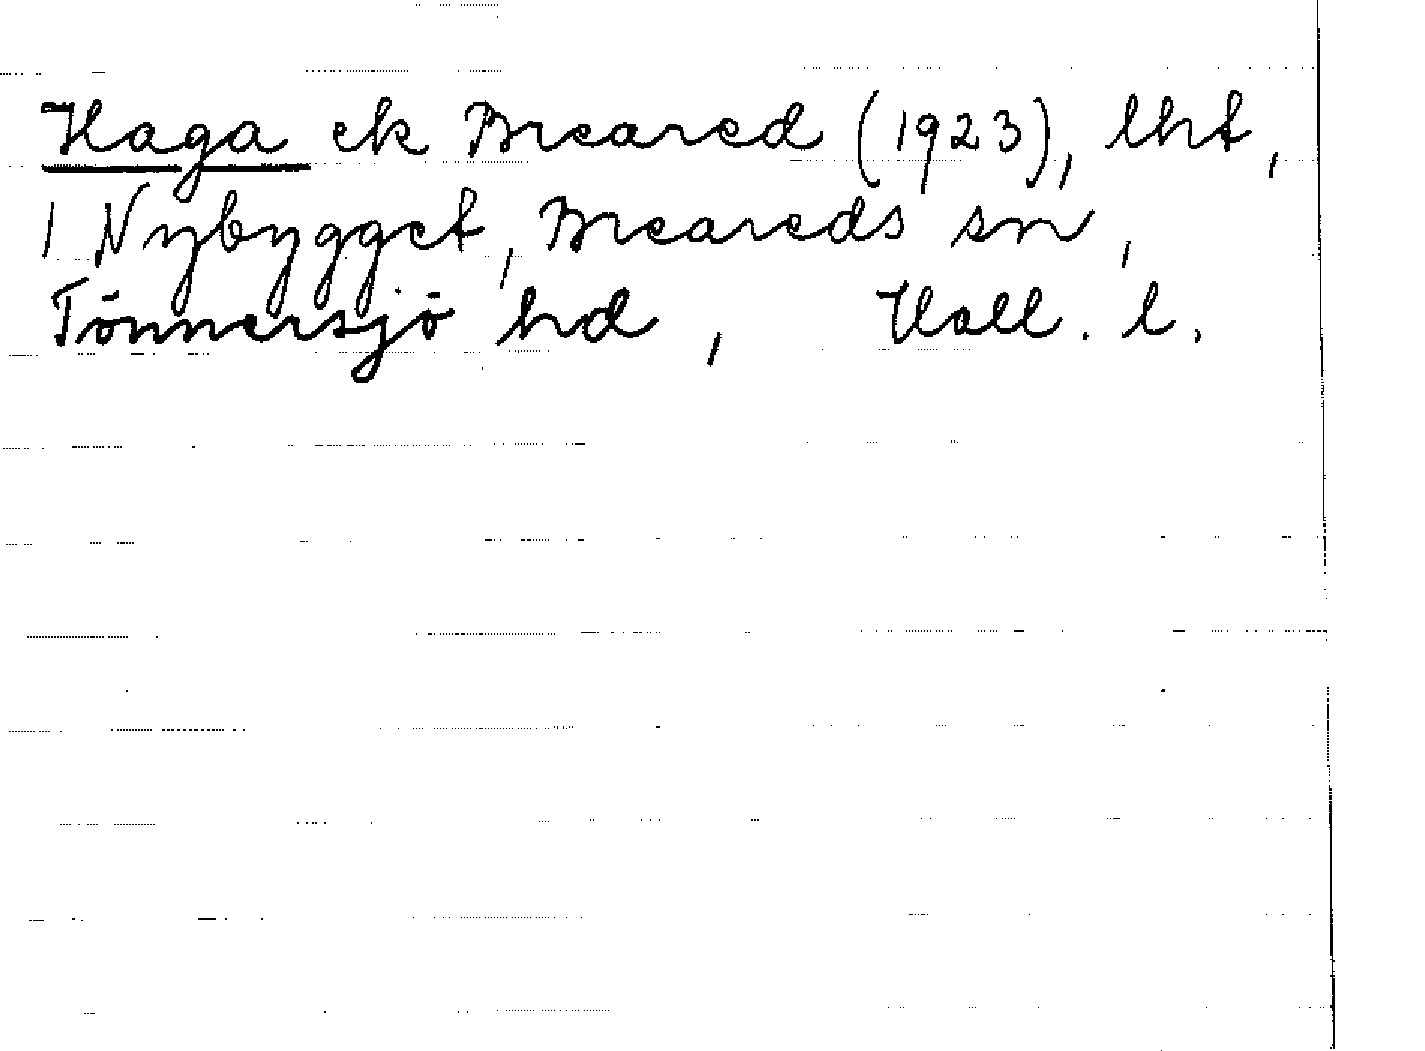 Haga ek Breared (1923), lht,
1 Nybygget, Breareds sn,
Tönnersjö hd, Hall. l.